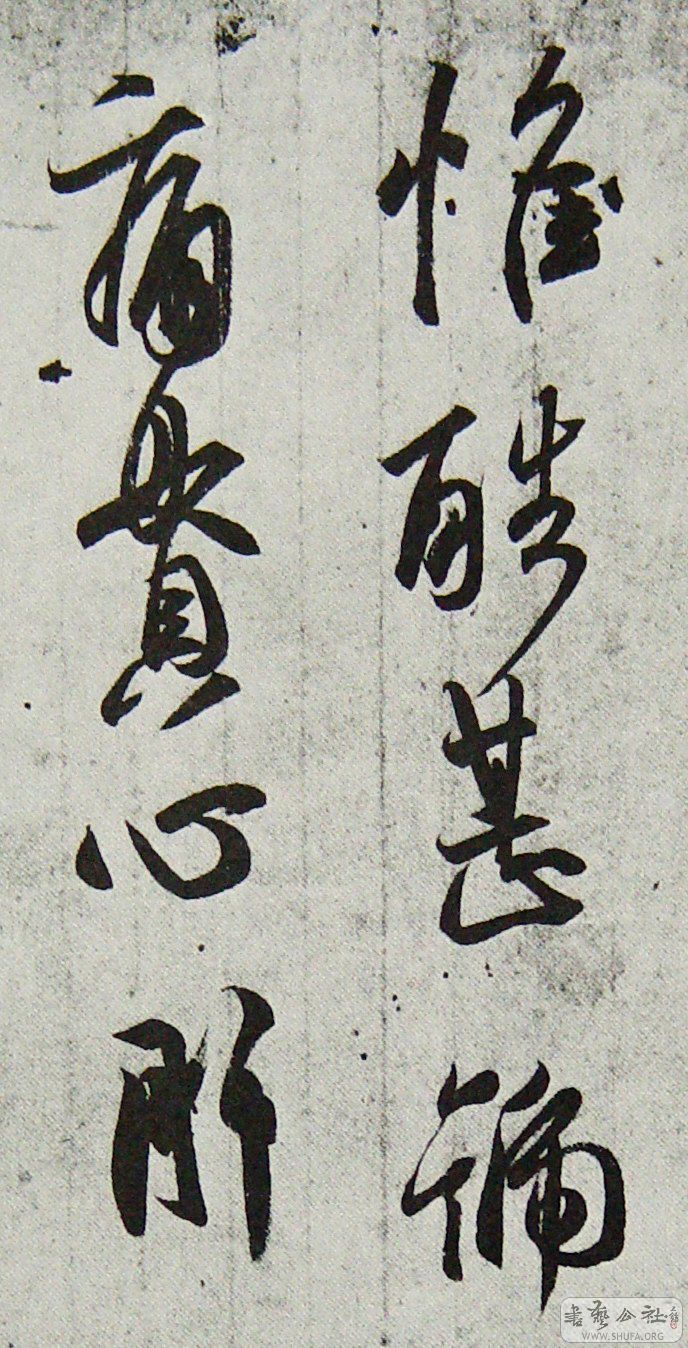 惟酷甚號
痛貫心肝
書藝公社
WWW.SHUFA.ORG